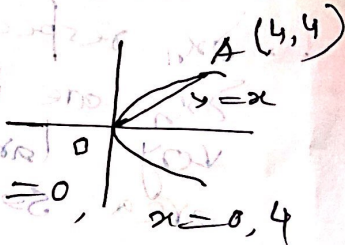 A (4,4)
y=x
0
=0,
x=0, 4